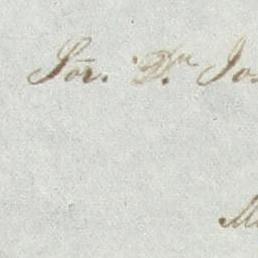 Sõr. Dⁿ. Jo
M